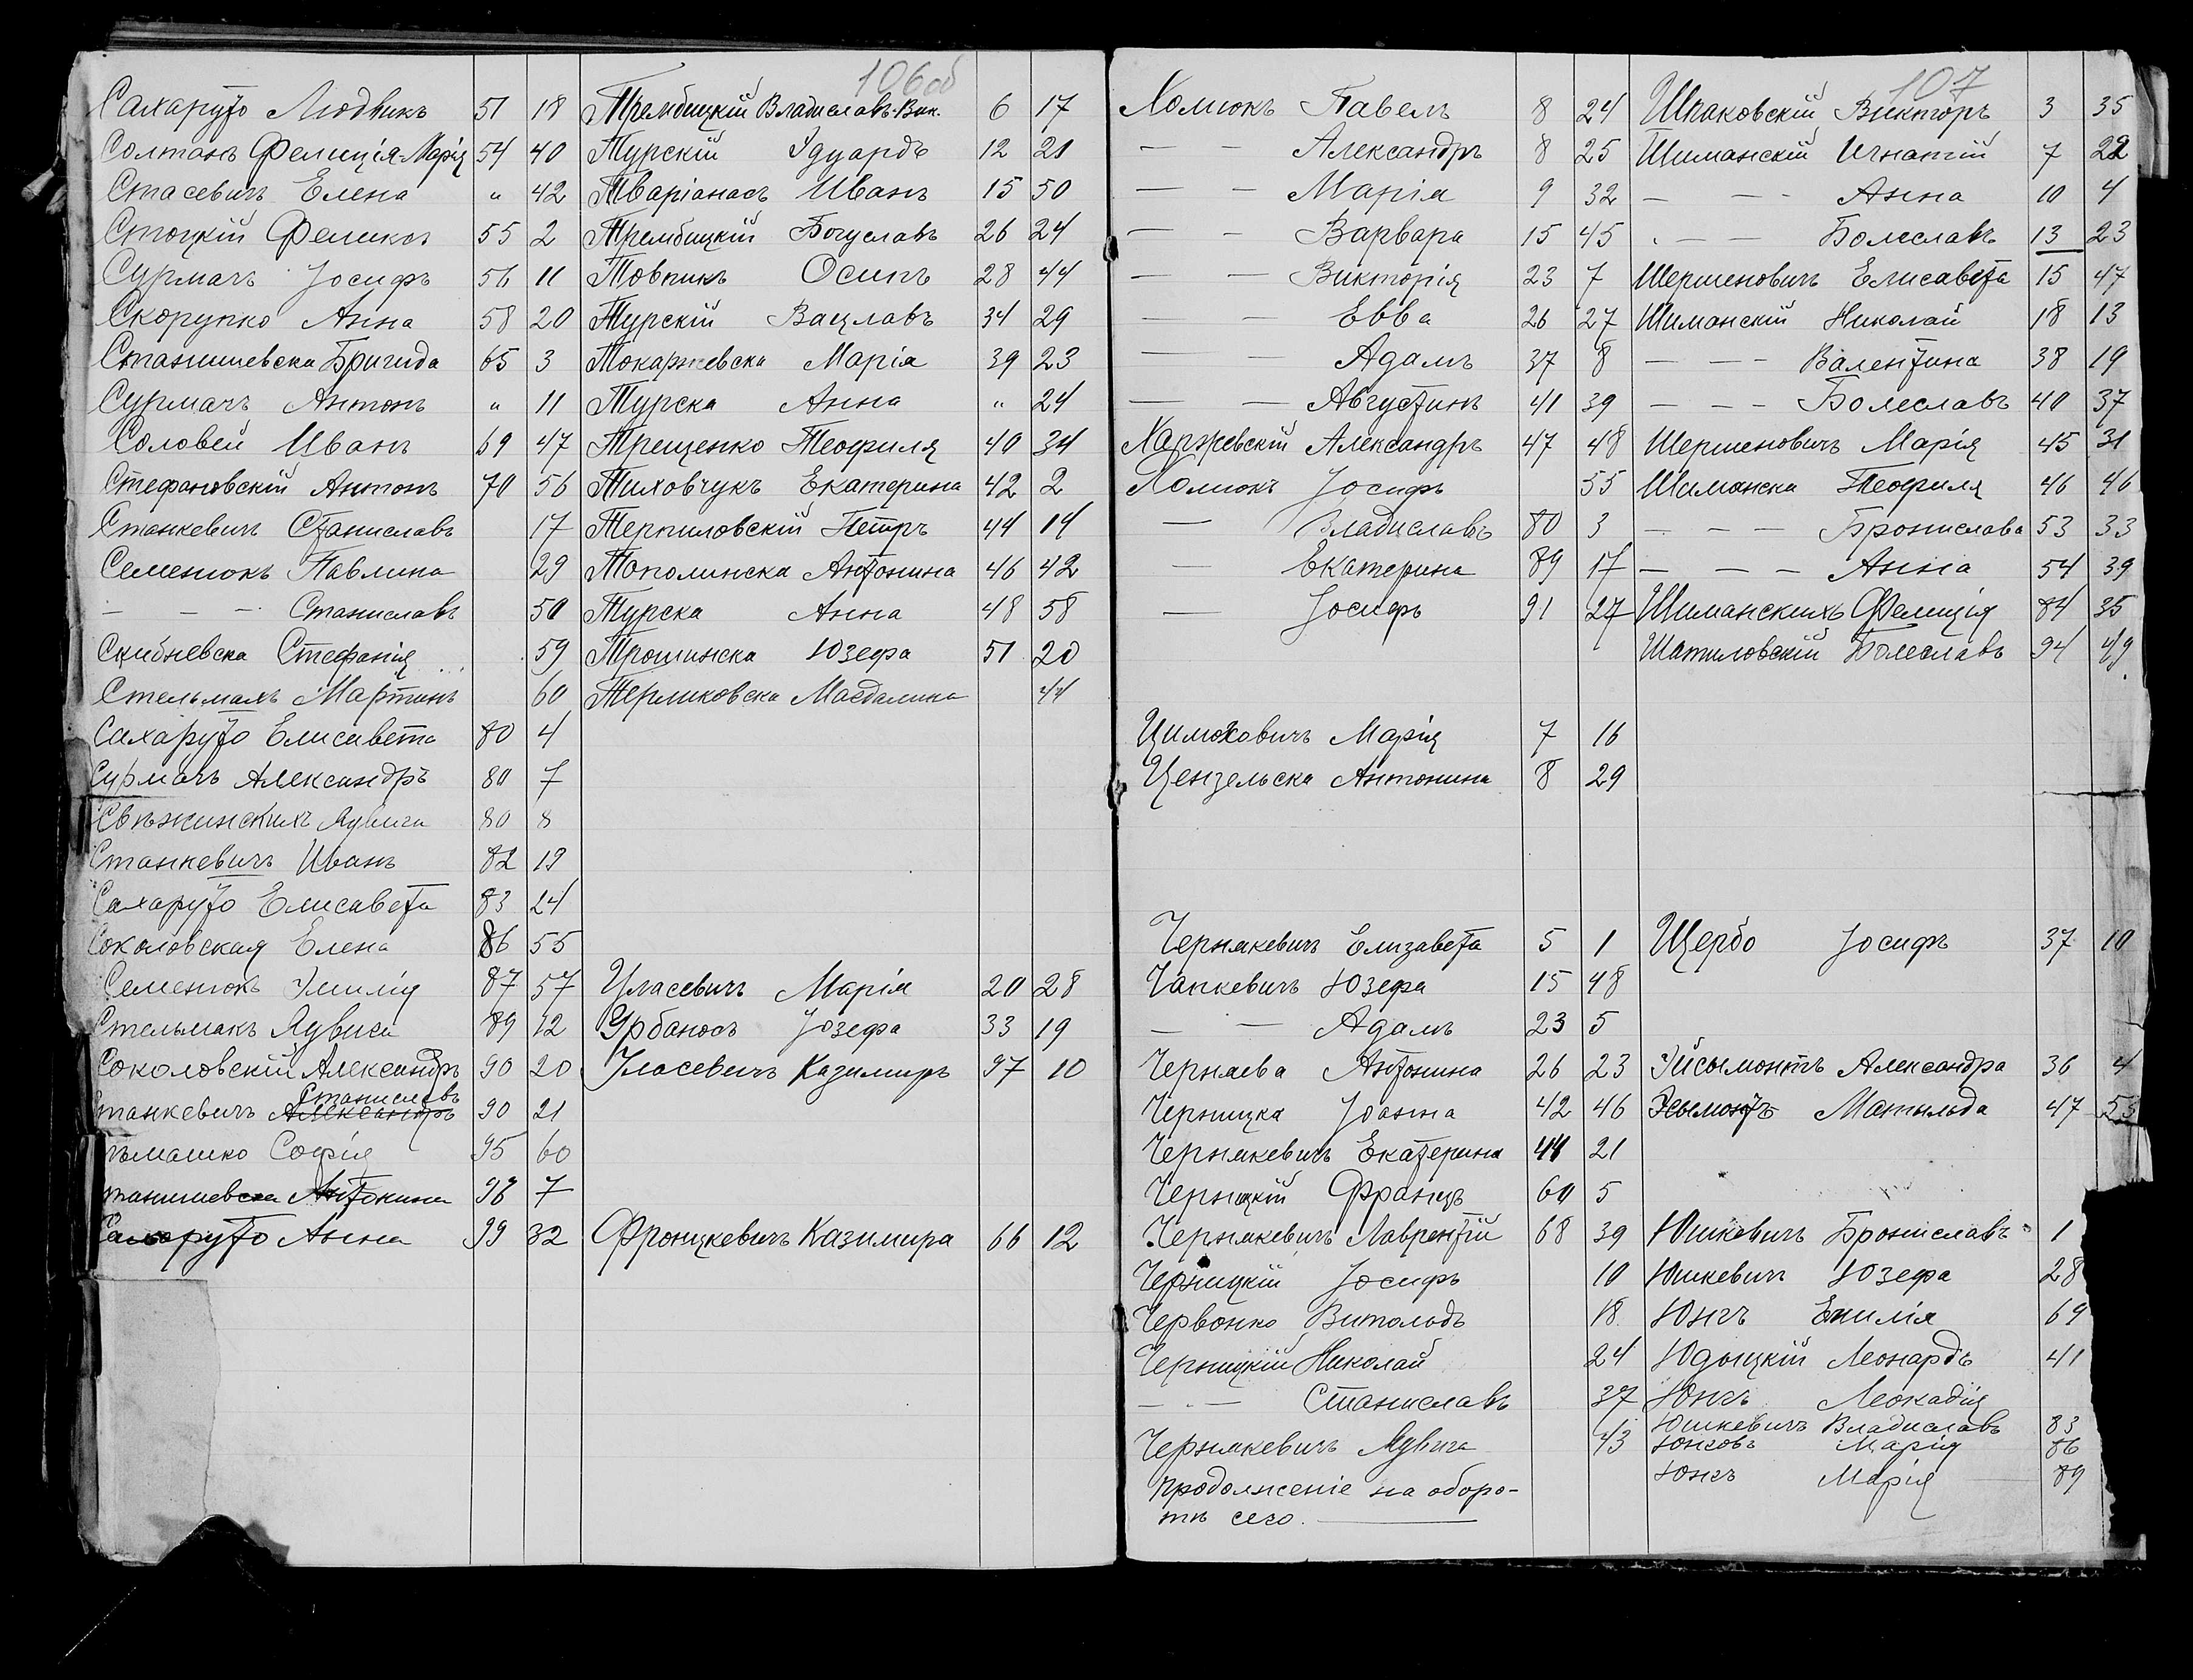 106об
Сахаруто Людвикъ 51 18
Солтанъ Фелиція-Марія 54 40
Стасевичъ Елена " 42
Стоцкій Феликсъ 55 2
Сурмачъ Іосифъ 56 11
Скорупко Анна 58 20
Станишевска Бригида 65 3
Сурмачъ Антонъ " 11
Соловей Иванъ 69 47
Стефановскій Антонъ 70 56
Станкевичъ Станиславъ 17
Семенюкъ Павлина 29
— — — Станиславъ 50
Скибневска Стефанія 59
Стельмахъ Мартинъ 60
Сахаруто Елисавета 80 4
Сурмачъ Александръ 80 7
Свѣжинскихъ Ядвига 80 8
Станкевичъ Иванъ 82 19
Сахаруто Елисавета 83 24
Соколовская Елена 86 55
Семенюкъ Эмилія 87 57
Стельмахъ Ядвига 89 12
Соколовскій Александръ 90 20
Станиславъ
Станкевичъ Александръ 90 21
Софія 95 60
танишевска Антонина 96 7
Сахаруто Анна 99 32
Трембицкій Владиславъ-Вик. 6 17
Турскій Эдуардъ 12 21
Тваріанасъ Иванъ 15 50
Трембицкій Богуславъ 26 24
Товпикъ Осипъ 28 44
Турскій Вацлавъ 34 29
Токаржевска Марія 39 23
Турска Анна " 24
Трещенко Теофиля 40 34
Тиховчукъ Екатерина 42 2
Терпиловскій Петръ 44 14
Тополинска Антонина 46 42
Турска Анна 48 58
Трошинска Юзефа 51 20
Терликовска Магдалина 44
Уласевичъ Марія 20 28
Урбаносъ Юзефа 33 19
Уласевичъ Казимиръ 97 10
Фронцкевичъ Казимира 66 12
107
Хомюкъ Павелъ 8 24
— — Александръ 8 25
— — Марія 9 32
— — Варвара 15 45
— — Викторія 23 7
— — Евва 26 27
— — Адамъ 37 8
— — Августинъ 41 39
Харжевскій Александръ 47 48
Хомюкъ Іосифъ 55
— Владиславъ 80 3
— Екатерина 89 17
— Іосифъ 91 27
Цимоховичъ Марія 7 16
Цензельска Антонина 8 29
Чернякевичъ Елизавета 5 1
Чапкевичъ Юзефа 15 48
— — Адамъ 23 5
Черняева Антонина 26 23
Черницка Іоанна 42 46
Чернякевичъ Екатерина 44 21
Черницкій Францъ 60 5
Чернякевичъ Лаврентій 68 39
Черницкій Іосифъ 10
Червонко Витольдъ 18
Черницкій Николай 24
— — Станиславъ 37
Чернякевичъ Ядвига 43
Продолженіе на оборо-
тѣ сего.
Шпаковскій Викторъ 3 35
Шиманскій Игнатій 7 22
— — Анна 10 4
— — Болеславъ 13 23
Шершеновичъ Елисавета 15 47
Шиманскій Николай 18 13
— — — Валентина 38 19
— — — Болеславъ 40 37
Шершеновичъ Марія 45 31
Шиманска Теофиля 46 46
— — — Бронислава 53 33
— — — Анна 54 39
Шиманскихъ Фелиція 84 35
Шатиловскій Болеславъ 94 49
Щербо Іосифъ 37 10
Эйсымонтъ Александра 36 4
Эсымонтъ Матильда 47 53
Юшкевичъ Брониславъ 1
Юшкевичъ Юзефа 28
Юнгъ Емилія 69
Юдыцкій Леонардъ 41
Юнгъ Леокадія
Юшкевичъ Владиславъ 83
Юнговъ Марія 86
Юнгъ Марія 89